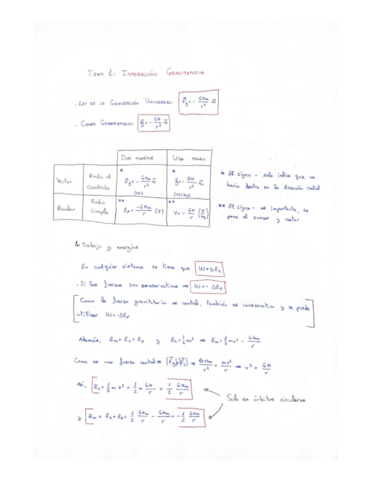 TEMA 1: INTERACCIÓN GRAVITATORIA
. LEY DE LA GRAVITACIÓN UNIVERSAL: F⃗g = - GMm/r² r⃗
. CAMPO GRAVITATORIO: g⃗ = - GM/r² r⃗
DOS MASAS UNA MASA
Vector Radio al cuadrado * F⃗g = - GMm/r² r⃗ (N) * g⃗ = - GM/r² r⃗ (N/kg)
Escalar Radio simple ** Ep = -GMm/r (J) ** V = - GM/r (J/kg)
* El signo - solo indica que va hacia dentro en la dirección radial
** El signo - es importante, se pone al sumar y restar
Trabajo y energía
En cualquier sistema se tiene que W = ΔEc
. Si las fuerzas son conservativas ⇒ W = - ΔEp
[Como la fuerza gravitatoria es central, también es conservativa y se puede
utilizar W = -ΔEp]
Además, Em = Ec + Ep y Ec = 1/2 mv² ⇒ Em = 1/2 mv² - GMm/r
Como es una fuerza central ⇒ |F⃗g| = |F⃗c| ⇒ GMm/r² = mv²/r ⇒ v² = GM/r
Así, Ec = 1/2 m v² = 1/2 m GM/r = 1/2 GMm/r
Solo en órbitas circulares
y Em = Ec + Ep = 1/2 GMm/r - GMm/r = - 1/2 GMm/r